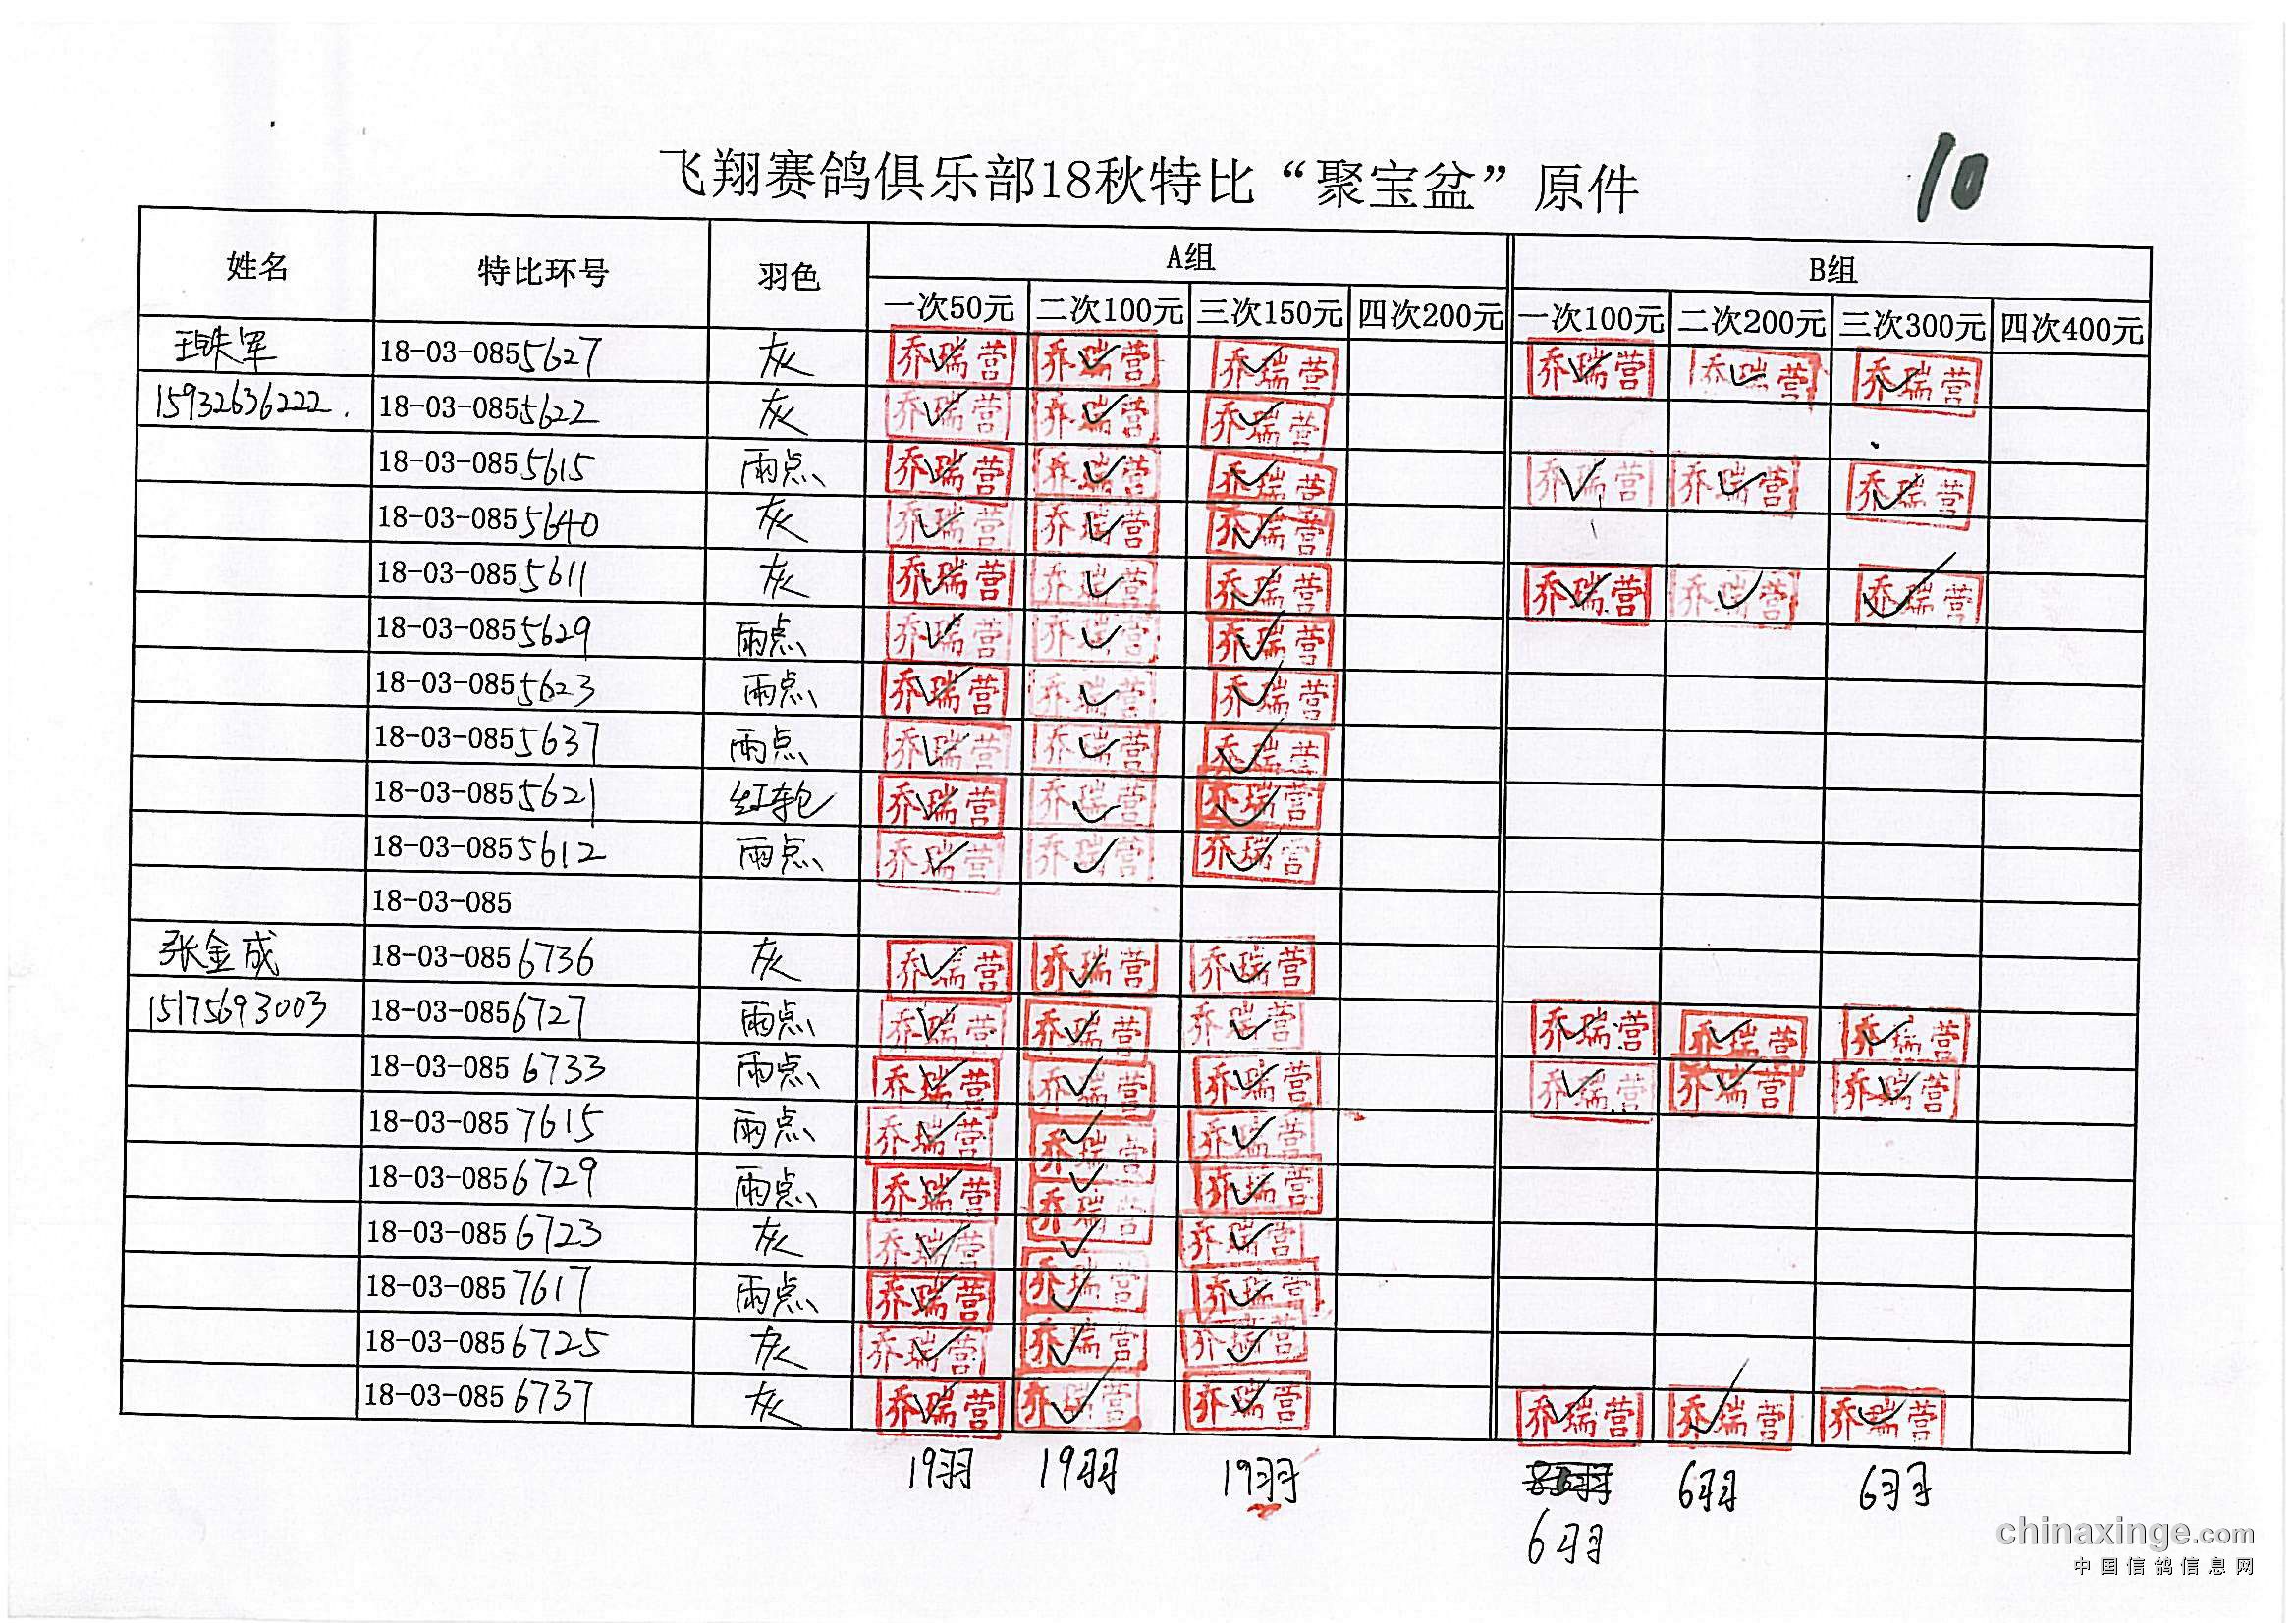 飞翔赛鸽俱乐部18秋特比“聚宝盆”原件
10
姓名 特比环号 羽色 A组 B组
一次50元 二次100元 三次150元 四次200元 一次100元 二次200元 三次300元 四次400元
18-03-0855627 灰 乔瑞营 乔瑞营 乔瑞营 乔瑞营 乔瑞营 乔瑞营
15932636222. 18-03-0855622 灰 乔瑞营 乔瑞营 乔瑞营
18-03-0855615 雨点 乔瑞营 乔瑞营 乔瑞营 乔瑞营 乔瑞营 乔瑞营
18-03-0855640 灰 乔瑞营 乔瑞营 乔瑞营
18-03-0855611 灰 乔瑞营 乔瑞营 乔瑞营 乔瑞营 乔瑞营 乔瑞营
18-03-0855629 雨点 乔瑞营 乔瑞营 乔瑞营
18-03-0855623 雨点 乔瑞营 乔瑞营 乔瑞营
18-03-0855637 雨点 乔瑞营 乔瑞营 乔瑞营
18-03-0855621 红轮 乔瑞营 乔瑞营 乔瑞营
18-03-0855612 雨点 乔瑞营 乔瑞营 乔瑞营
18-03-085
张金成 18-03-0856736 灰 乔瑞营 乔瑞营 乔瑞营
15175693003 18-03-0856727 雨点 乔瑞营 乔瑞营 乔瑞营 乔瑞营 乔瑞营 乔瑞营
18-03-0856733 雨点 乔瑞营 乔瑞营 乔瑞营 乔瑞营 乔瑞营 乔瑞营
18-03-0857615 雨点 乔瑞营 乔瑞营 乔瑞营
18-03-0856729 雨点 乔瑞营 乔瑞营 乔瑞营
18-03-0856723 灰 乔瑞营 乔瑞营 乔瑞营
18-03-0857617 雨点 乔瑞营 乔瑞营 乔瑞营
18-03-0856725 灰 乔瑞营 乔瑞营 乔瑞营
18-03-0856737 灰 乔瑞营 乔瑞营 乔瑞营 乔瑞营 乔瑞营 乔瑞营
19羽 19羽 19羽 6羽 6羽
6羽
chinaxinge.com
中国信鸽信息网